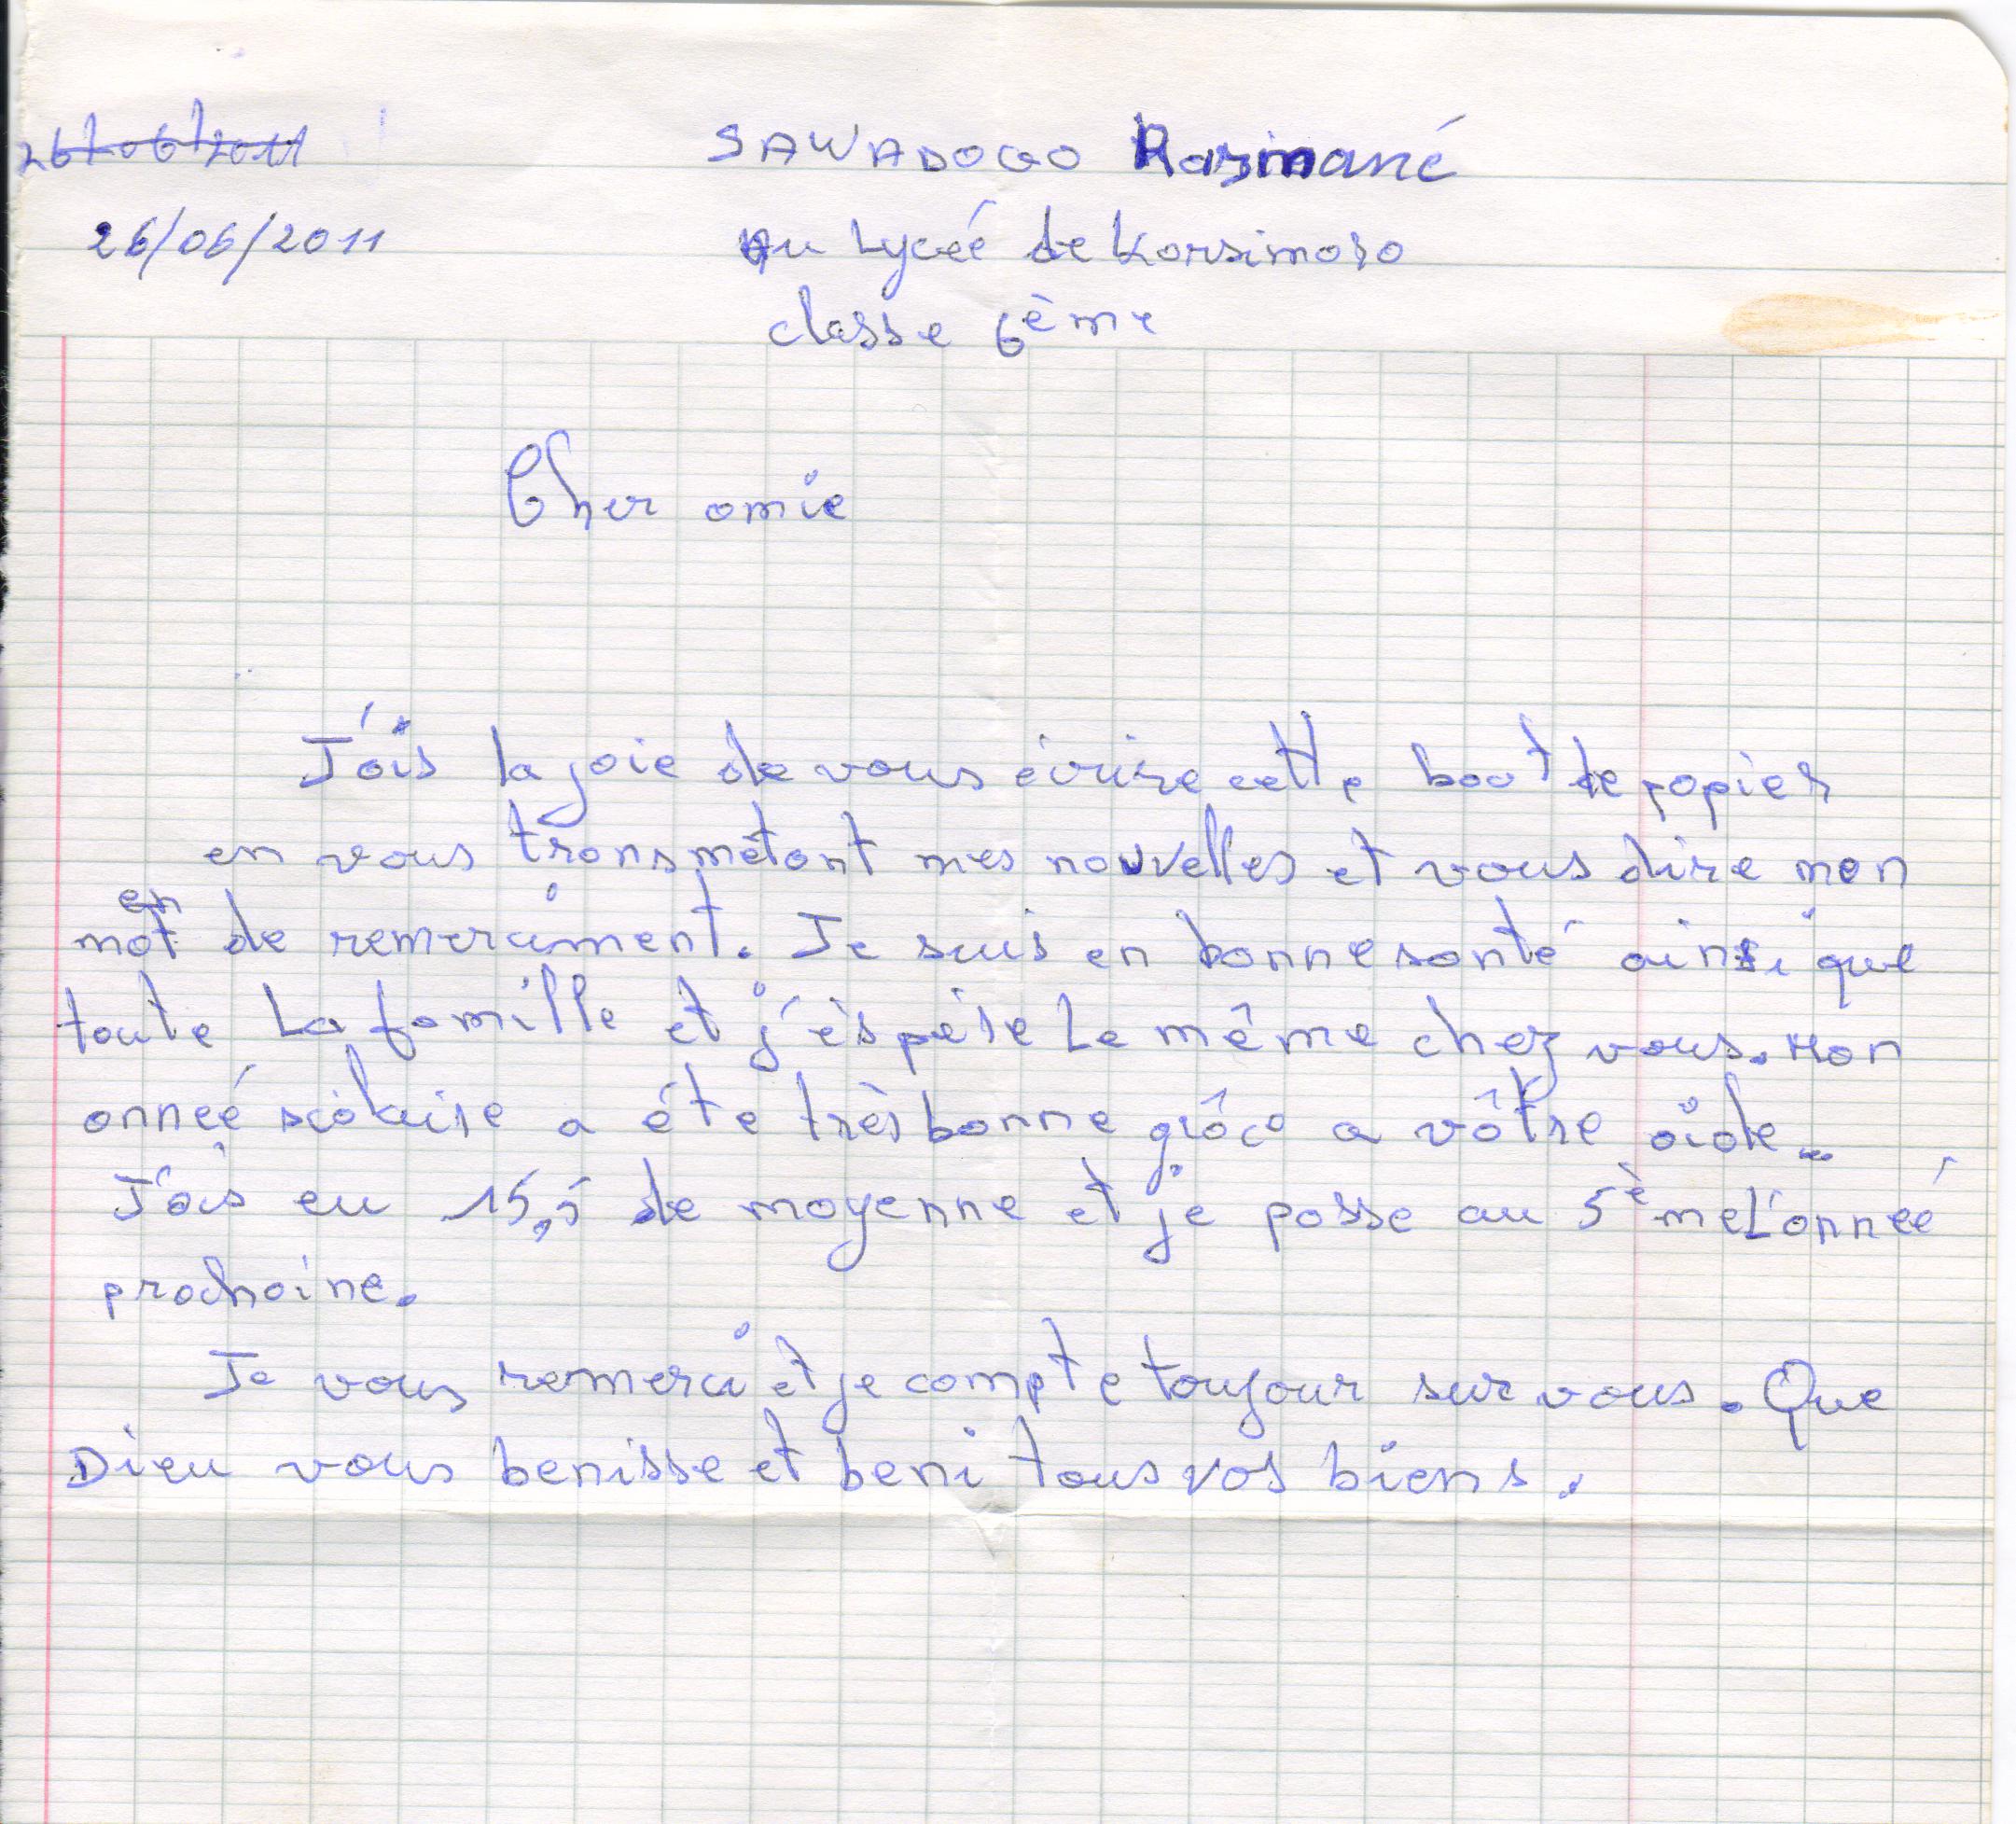 26/06/2011
SAWADOGO Rasmané
26/06/2011
Au Lyceé de Korsimoro
classe 6ème
Cher amie
J'ais la joie de vous écrire cette bout de papier
en vous transmétant mes nouvelles et vous dire mon
en
mot de remerciment. Je suis en bonne santé ainsi que
toute La famille et j'éspère Le même chez vous. Mon
anneé scolaire a éte très bonne grâce a vôtre aide.
J'ais eu 15,5 de moyenne et je passe au 5ème L'anneé
prochaine.
Je vous remerci et je compte toujour sur vous. Que
Dieu vous benisse et beni tous vos biens.